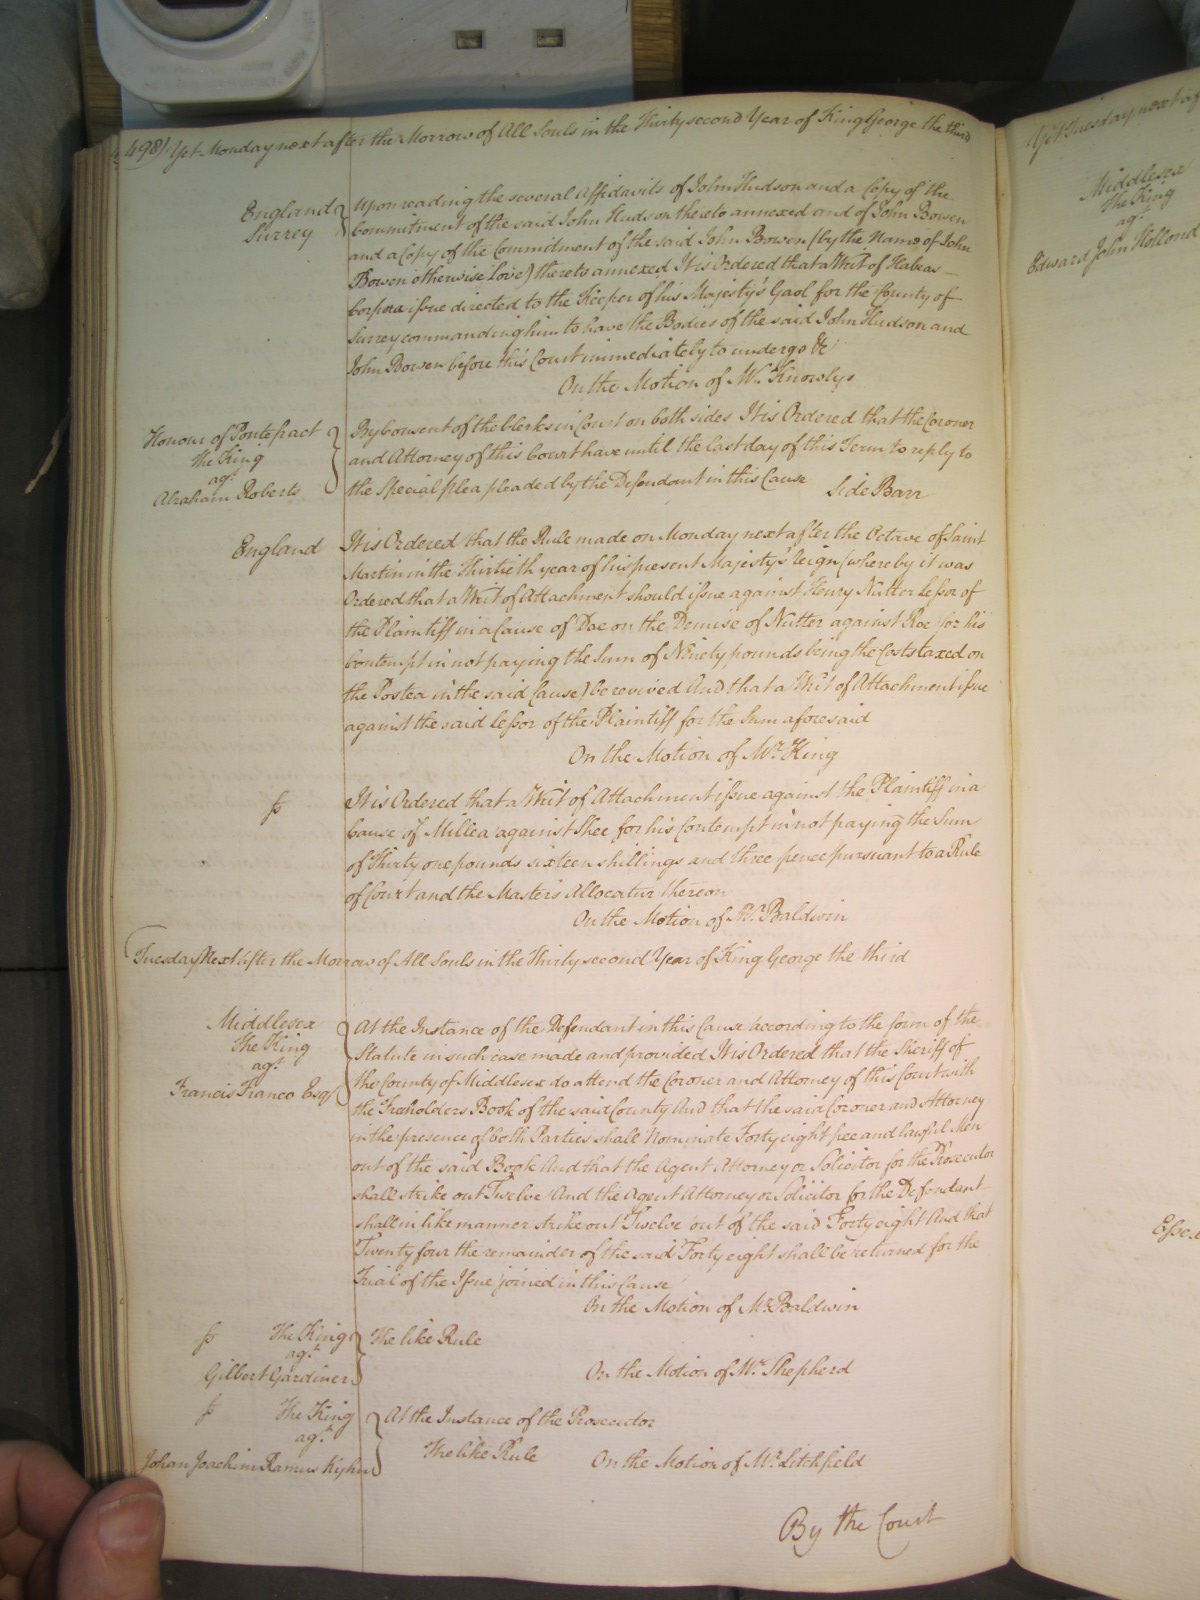 498) Yet Monday next after the Morrow of All Souls in the Thirty second Year of King George the third
England
Surrey
Upon reading the several Affidavits of John Hudson and a Copy of the
Commitment of the said John Hudson thereto annexed and of John Bowen
and a Copy of the Commitment of the said John Bowen (by the Name of John
Bowen otherwise Love) thereto annexed It is Ordered that a Writ of Habeas
Corpora issue directed to the Keeper of his Majesty's Gaol for the County of
Surrey commanding him to have the Bodies of the said John Hudson and
John Bowen before this Court immediately to undergo &c
On the Motion of Mr. Knowlys
Honour of Pontefract
The King
agt.
Abraham Roberts
By Consent of the Clerks in Court on both sides It is Ordered that the Coroner
and Attorney of this Court have until the last day of this Term to reply to
the Special plea pleaded by the Defendant in this Cause Side Barr
England
It is Ordered that the Rule made on Monday next after the Octave of Saint
Martin in the Thirtieth year of his present Majesty's reign (whereby it was
Ordered that a Writ of Attachment should issue against Henry Nutter Lessor of
the Plaintiff in a Cause of Doe on the Demise of Nutter against Roe for his
Contempt in not paying the Sum of Ninety pounds being the Costs taxed on
the Postea in the said Cause) be revived And that a Writ of Attachment issue
against the said Lessor of the Plaintiff for the Sum aforesaid
On the Motion of Mr. King
fs
It is Ordered that a Writ of Attachment issue against the Plaintiff in a
Cause of Millea against Skee for his Contempt in not paying the Sum
of Thirty one pounds sixteen shillings and three pence pursuant to a Rule
of Court and the Masters Allocatur thereon
On the Motion of Mr. Baldwin
Tuesday Next After the Morrow of All Souls in the Thirty second Year of King George the third
Middlesex
The King
agt.
Francis Franco Esqr
At the Instance of the Defendant in this Cause according to the form of the
Statute in such case made and provided It is Ordered that the Sheriff of
the County of Middlesex do attend the Coroner and Attorney of this Court with
the Freeholders Book of the said County And that the said Coroner and Attorney
in the presence of both Parties shall Nominate Forty eight free and lawful Men
out of the said Book And that the Agent Attorney or Solicitor for the Prosecutor
shall strike out Twelve And the Agent Attorney or Solicitor for the Defendant
shall in like manner strike out Twelve out of the said Forty eight And that
Twenty four the remainder of the said Forty eight shall be returned for the
Trial of the Issue joined in this Cause
On the Motion of Mr. Baldwin
fs The King
agt.
Gilbert Gardiner
The like Rule
On the Motion of Mr. Shepherd
fs The King
agt.
Johan Joachim Ramus
At the Instance of the Prosecutor
The like Rule On the Motion of Mr. Litchfield
By the Court
Yet Tuesday next
Middlesex
The King
agt.
Edward John Hollond